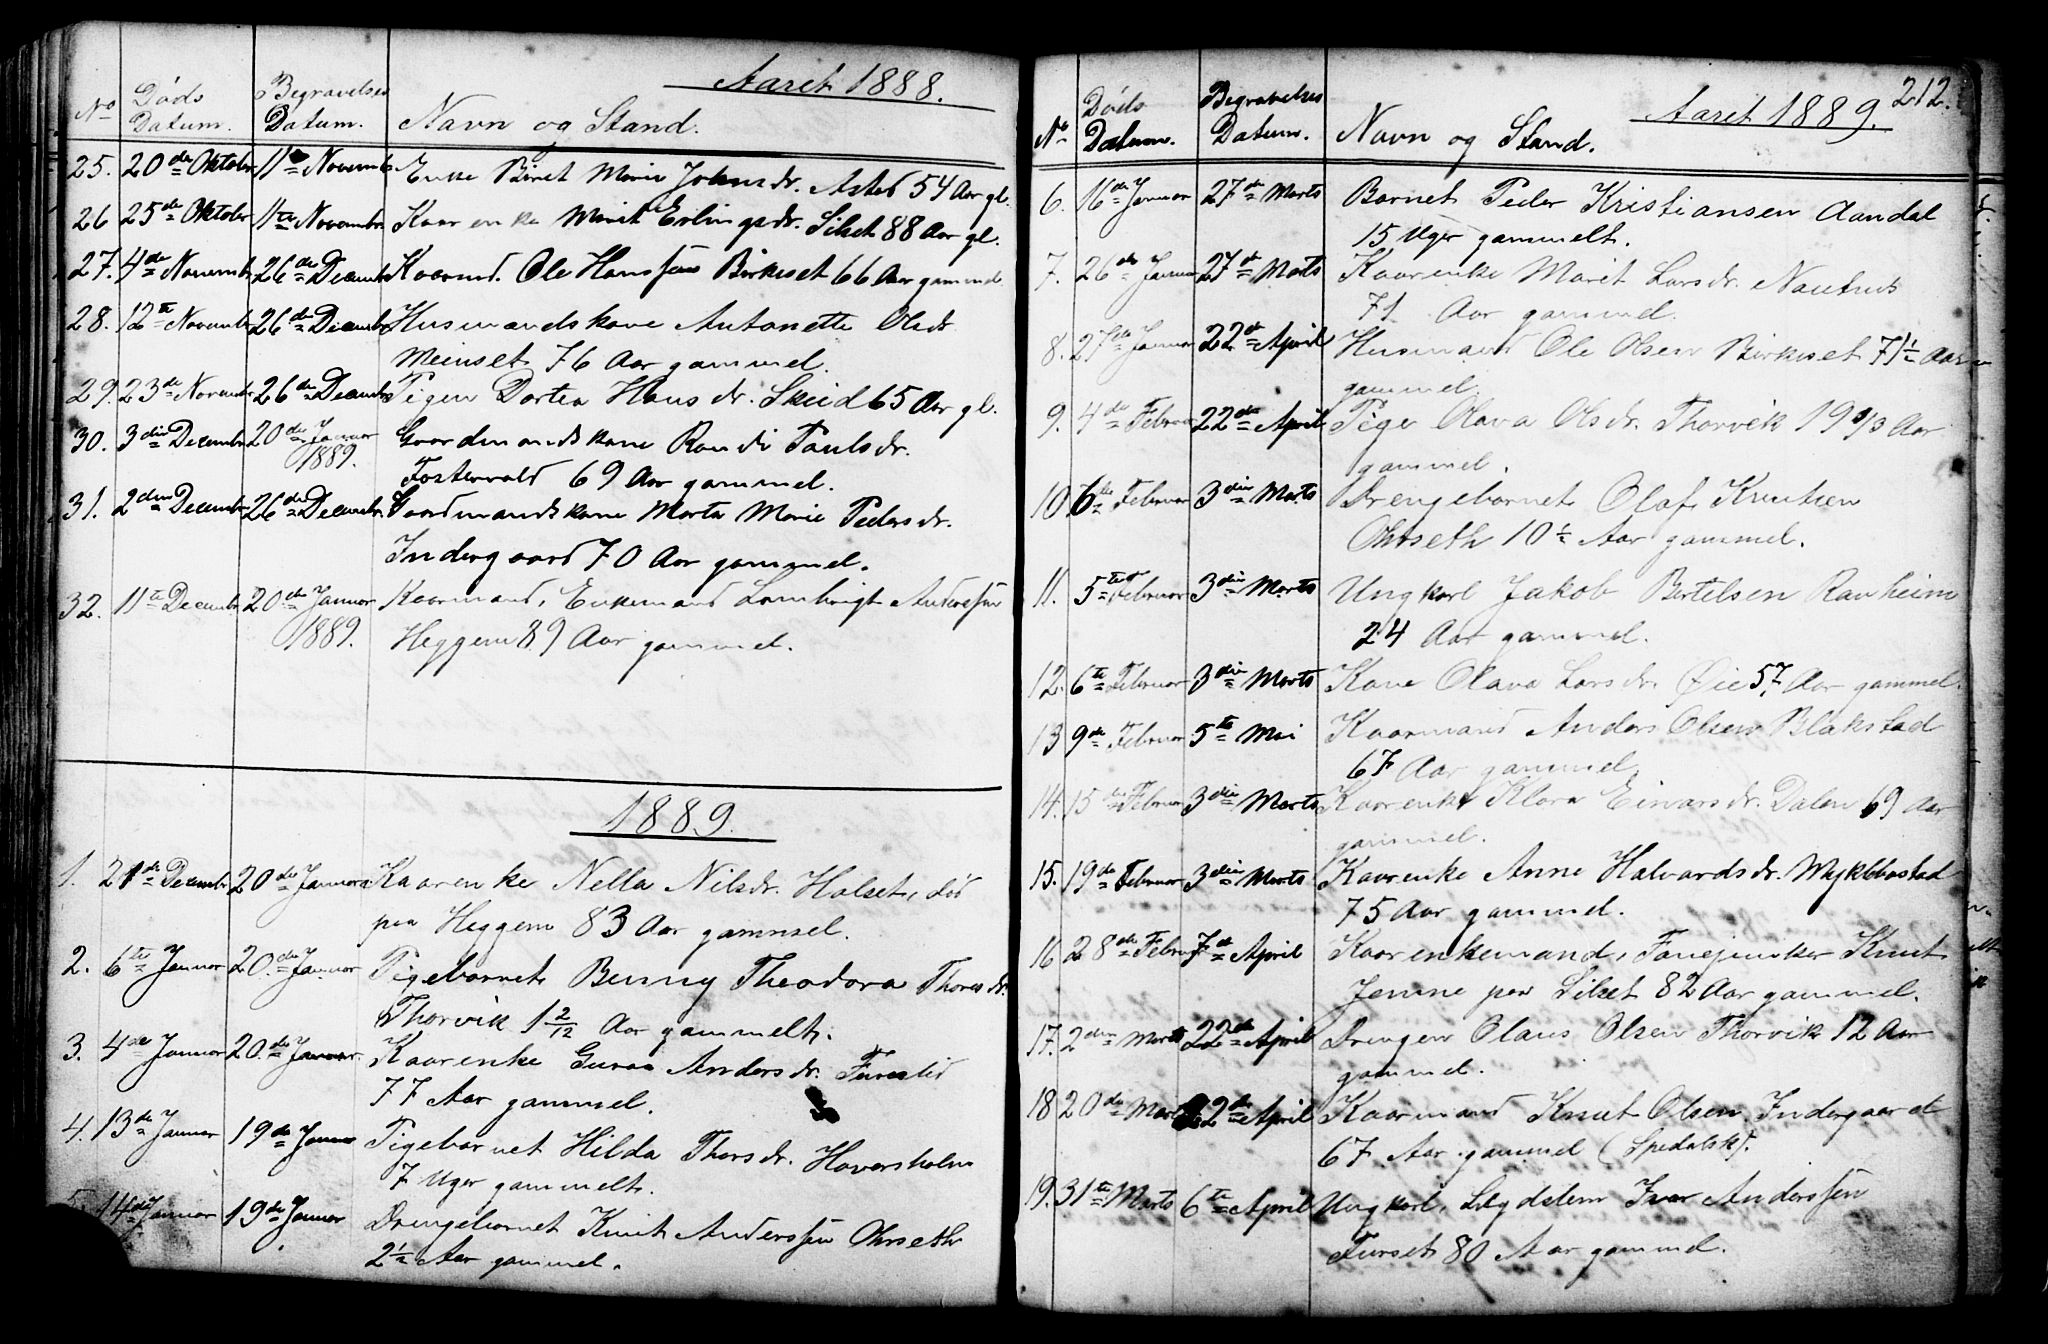 Aaret 1888.
No Döds Datum. Begravelses Datum. Navn og Stand.
25. 20de Oktober 11te Novemb Enke Beret Marie Johnsdr. Astad 54 Aar gl.
26 25de Oktober 11te Novembr. Kaarenke Marit Erlingsdr. Silset 88 Aar gl.
27. 4de Novembr. 26de Decembr Kaarmd. Ole Hanssen Birkeset 66 Aar gammel
28. 12te Novembr 26de Decembr Husmandskone Antonette Olsdr
Meinset 76 Aar gammel.
29. 23de Novembr 26de Decembr Pigen Dortea Hansdr. Skeid 65 Aar gl.
30. 3die Decembr 20de Januar 1889. Gaardmandskone Randi Paulsdr.
Fostervold 69 Aar gammel.
31. 2den Decembr 26de Decembr. Gaardmandskone Marta Marie Pedersdr.
Indergaard 70 Aar gammel.
32. 11te Decembr 20de Januar 1889. Kaarmand, Enkemand Lambrigt Anderssen
Heggem 89 Aar gammel.
1889.
1. 21de Decembr 20de Januar Kaarenke Nella Nilsdr. Halset, död
paa Heggem 83 Aar gammel.
2. 6te Januar 20de Januar Pigebarnet Benny Theodora Thoresdr.
Thorvik 1 2/12 Aar gammelt.
3. 4de Januar 20de Januar. Kaarenke Guroe Andersdr. Furestid
77 Aar gammel.
4. 13de Januar 19de Januar Pigebarnet Hilda Thorsdr. Haversholm
7 Uger gammelt.
5. 14de Januar 19de Januar Drengebarnet Knut Anderssen Ohrseth
2 1/2 Aar gammel.
Aaret 1889. 212.
No Döds Datum. Begravelses Datum. Navn og Stand.
6. 16de Januar 27de Marts Barnet Peder Kristiansen Aandal
15 Uger gammelt.
7. 26de Januar 27de Marts Kaarenke Marit Larsdr.
71 Aar gammel.
8. 27de Januar 22de April Husmand Ole Olsen Birkeset 71 1/2 Aar
gammel.
9. 4de Februar 22de April Pige Olava Olsdr. Thorvik 19 Aar
gammel.
10 6te Februar 3die Marts Drengebarnet Olaf Knutsen
Ohrseth 10 1/2 Aar gammel.
11. 5te Februar 3die Marts Ungkarl Jakob Bertelsen Ranheim
24 Aar gammel.
12. 6te Februar 3die Marts Kone Olava Larsdr. Øie 57 Aar gammel.
13 9de Februar 5te Mai Kaarmand Anders Olsen Blakstad
67 Aar gammel.
14. 15de Februar 3die Marts Kaarenke Klara Einarsdr. Dalen 69 Aar
gammel.
15. 19de Februar 3die Marts Kaarenke Anne Halvardsdr. Myklebostad
75 Aar gammel.
16 28de Febru 7de April Kaarenkemand, Fanejunker Knut
Jenine paa Silset 82 Aar gammel.
17. 2den Marts 22de April Drengen Olaus Olsen Thorvik 12 Aar
gammel.
18 20de Marts 22de April Kaarmand Knut Olsen Indergaard
67 Aar gammel (Spedalsk).
19. 31te Marts 6te April Ungkarl, Lægdslem Ivar Anderssen
Furset 80 Aar gammel.